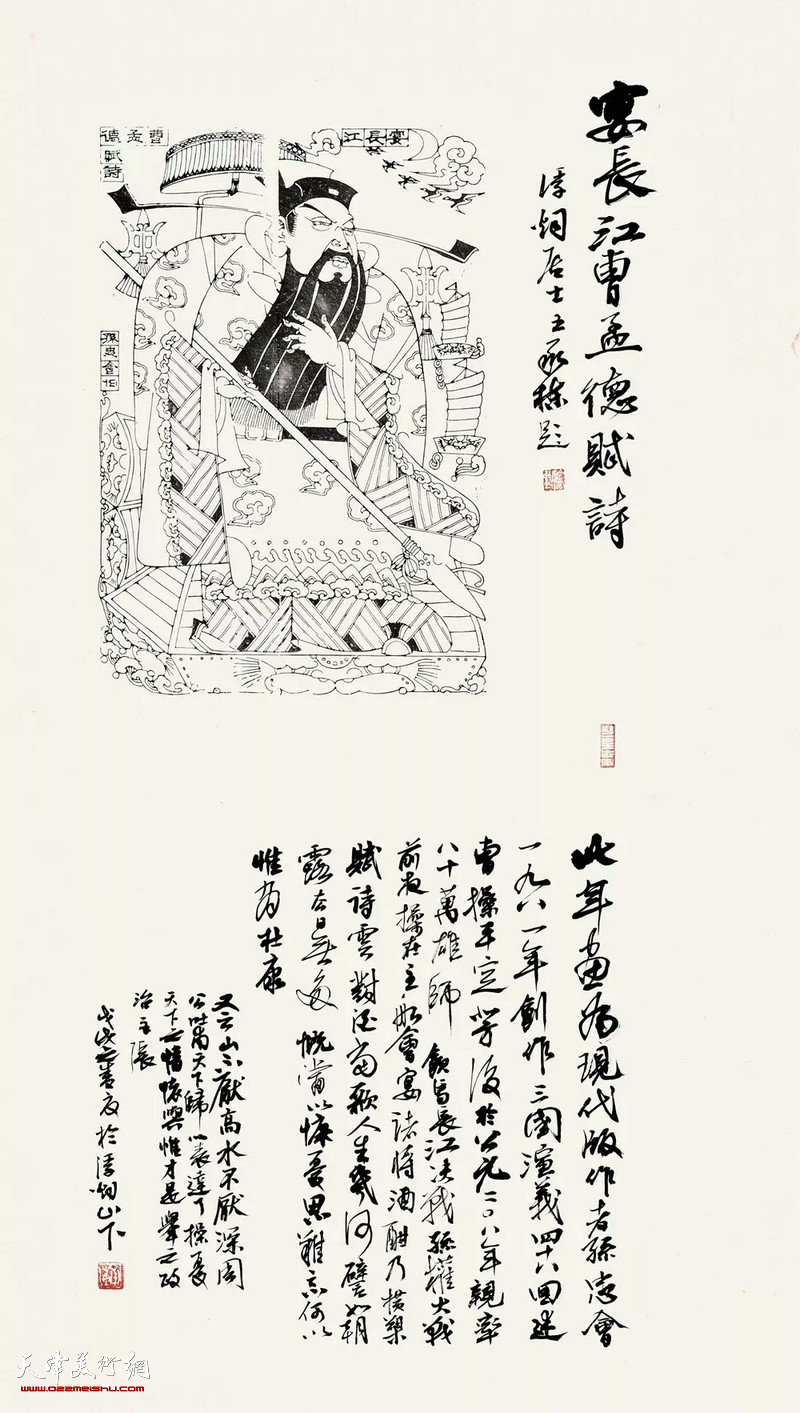 宴長江曹孟德賦詩
居士王承棟題
宴長江
曹孟德
賦詩
此年畫為現代版作者孫會
一九八一年創作三國演義四十八回述
曹操平定後於公元二〇八年親率
八十萬雄師飲馬長江決戰孫權大戰
前夜操在主船會宴諸將酒酣乃橫槊
賦詩雲對酒當歌人生幾何譬如朝
露去日無多慨當以慷憂思難忘何以
惟有杜康
又云山不厭高水不厭深周
公吐哺天下歸心表達了操憂
天下之情懷與惟才是舉之政
治主張
戊戌之於山下
天津美術網
www.022meishu.com